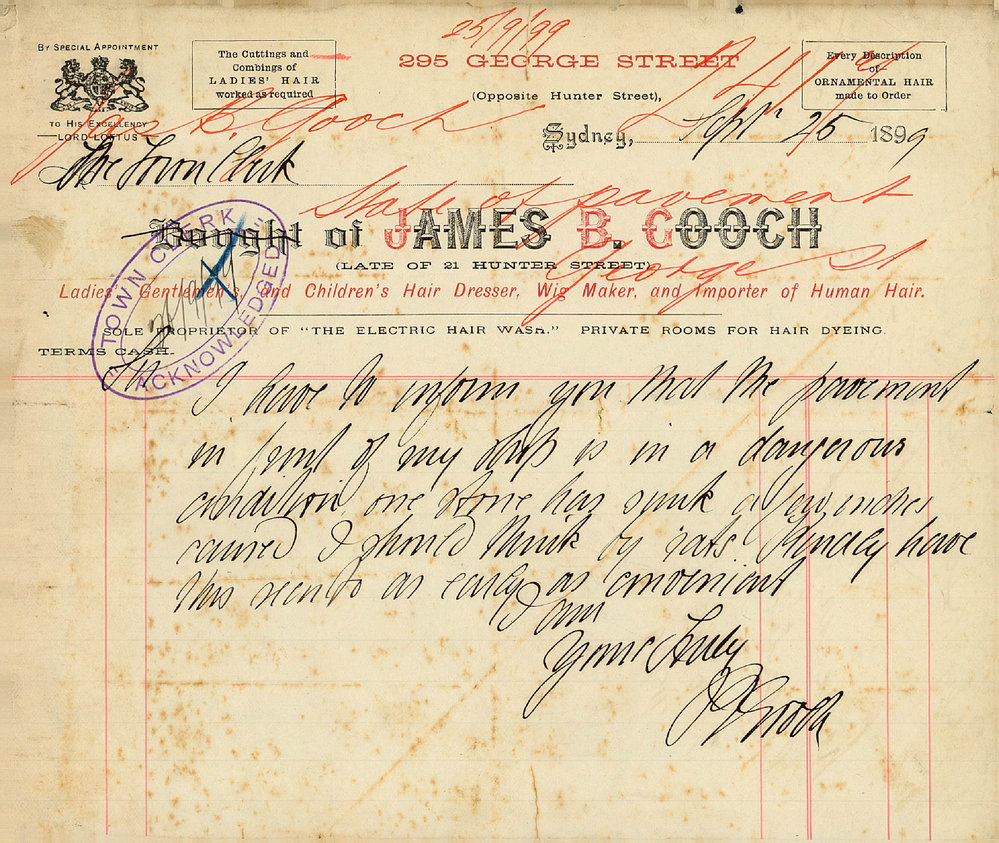 25/9/99
By Special Appointment
to His Excellency
Lord Loftus
The Cuttings and
Combings of
LADIES' HAIR
worked as required
295 GEORGE STREET
(Opposite Hunter Street),
Every Description
of
ORNAMENTAL HAIR
made to Order
Jas B. Gooch
Sydney, Sept 25 1899
The Town Clerk
State of pavement
Bought of JAMES B. GOOCH
(LATE OF 21 HUNTER STREET)
George St
Ladies', Gentlemen's, and Children's Hair Dresser, Wig Maker, and Importer of Human Hair.
SOLE PROPRIETOR OF "THE ELECTRIC HAIR WASH." PRIVATE ROOMS FOR HAIR DYEING.
TERMS CASH.
TOWN CLERK
ACKNOWLEDGED
Sir
I have to inform you that the pavement
in front of my shop is in a dangerous
condition one stone has sunk a few inches
caused I should think by rats. Kindly have
this seen to as early as convenient
I am
Yours truly
J B Gooch